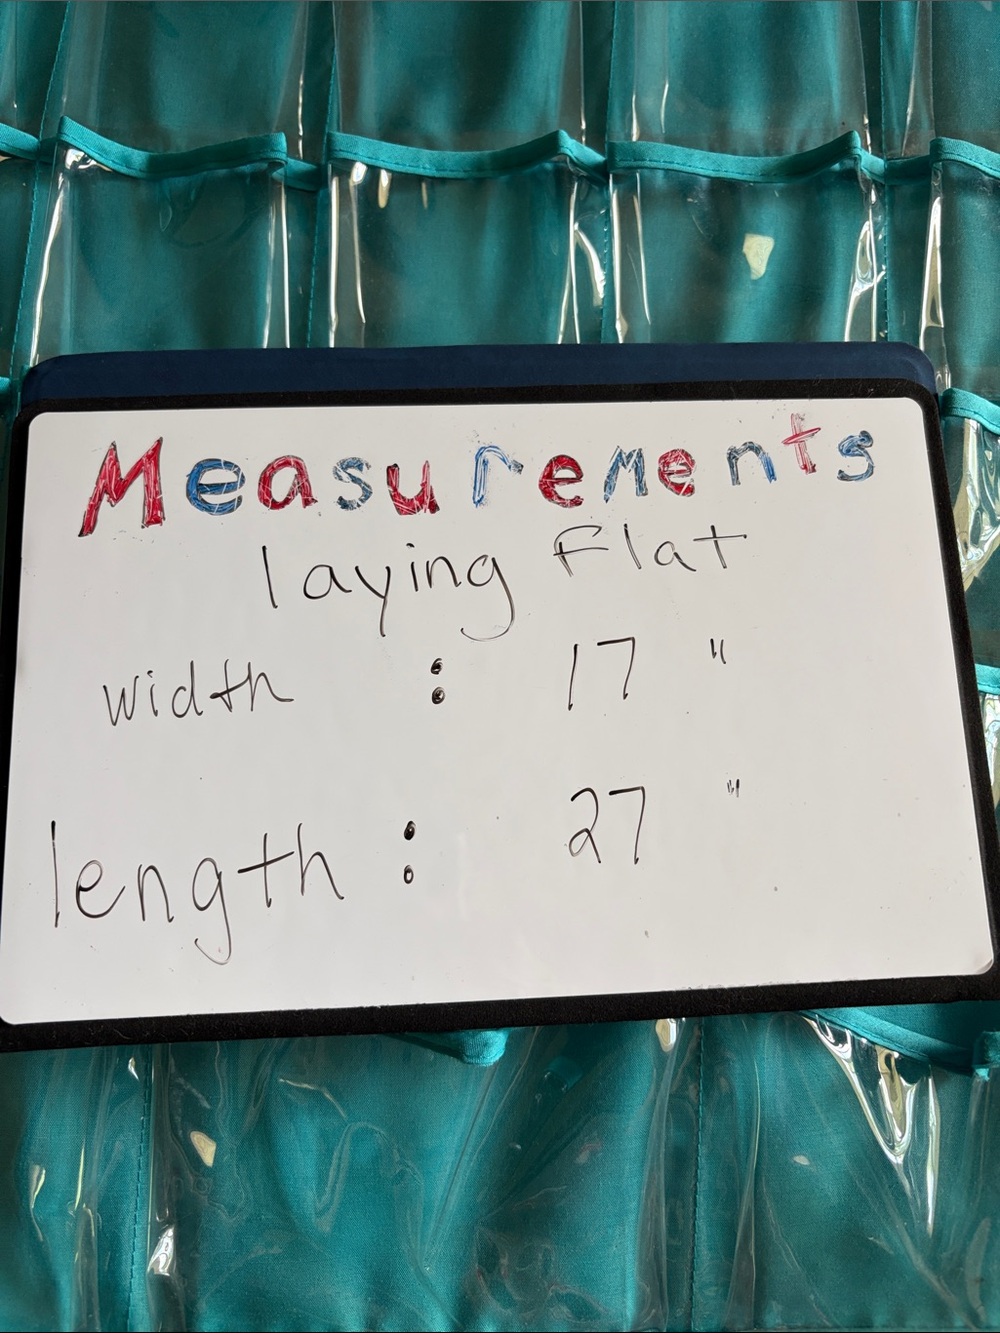 Measurements
laying Flat
width : 17 "
length : 27 "